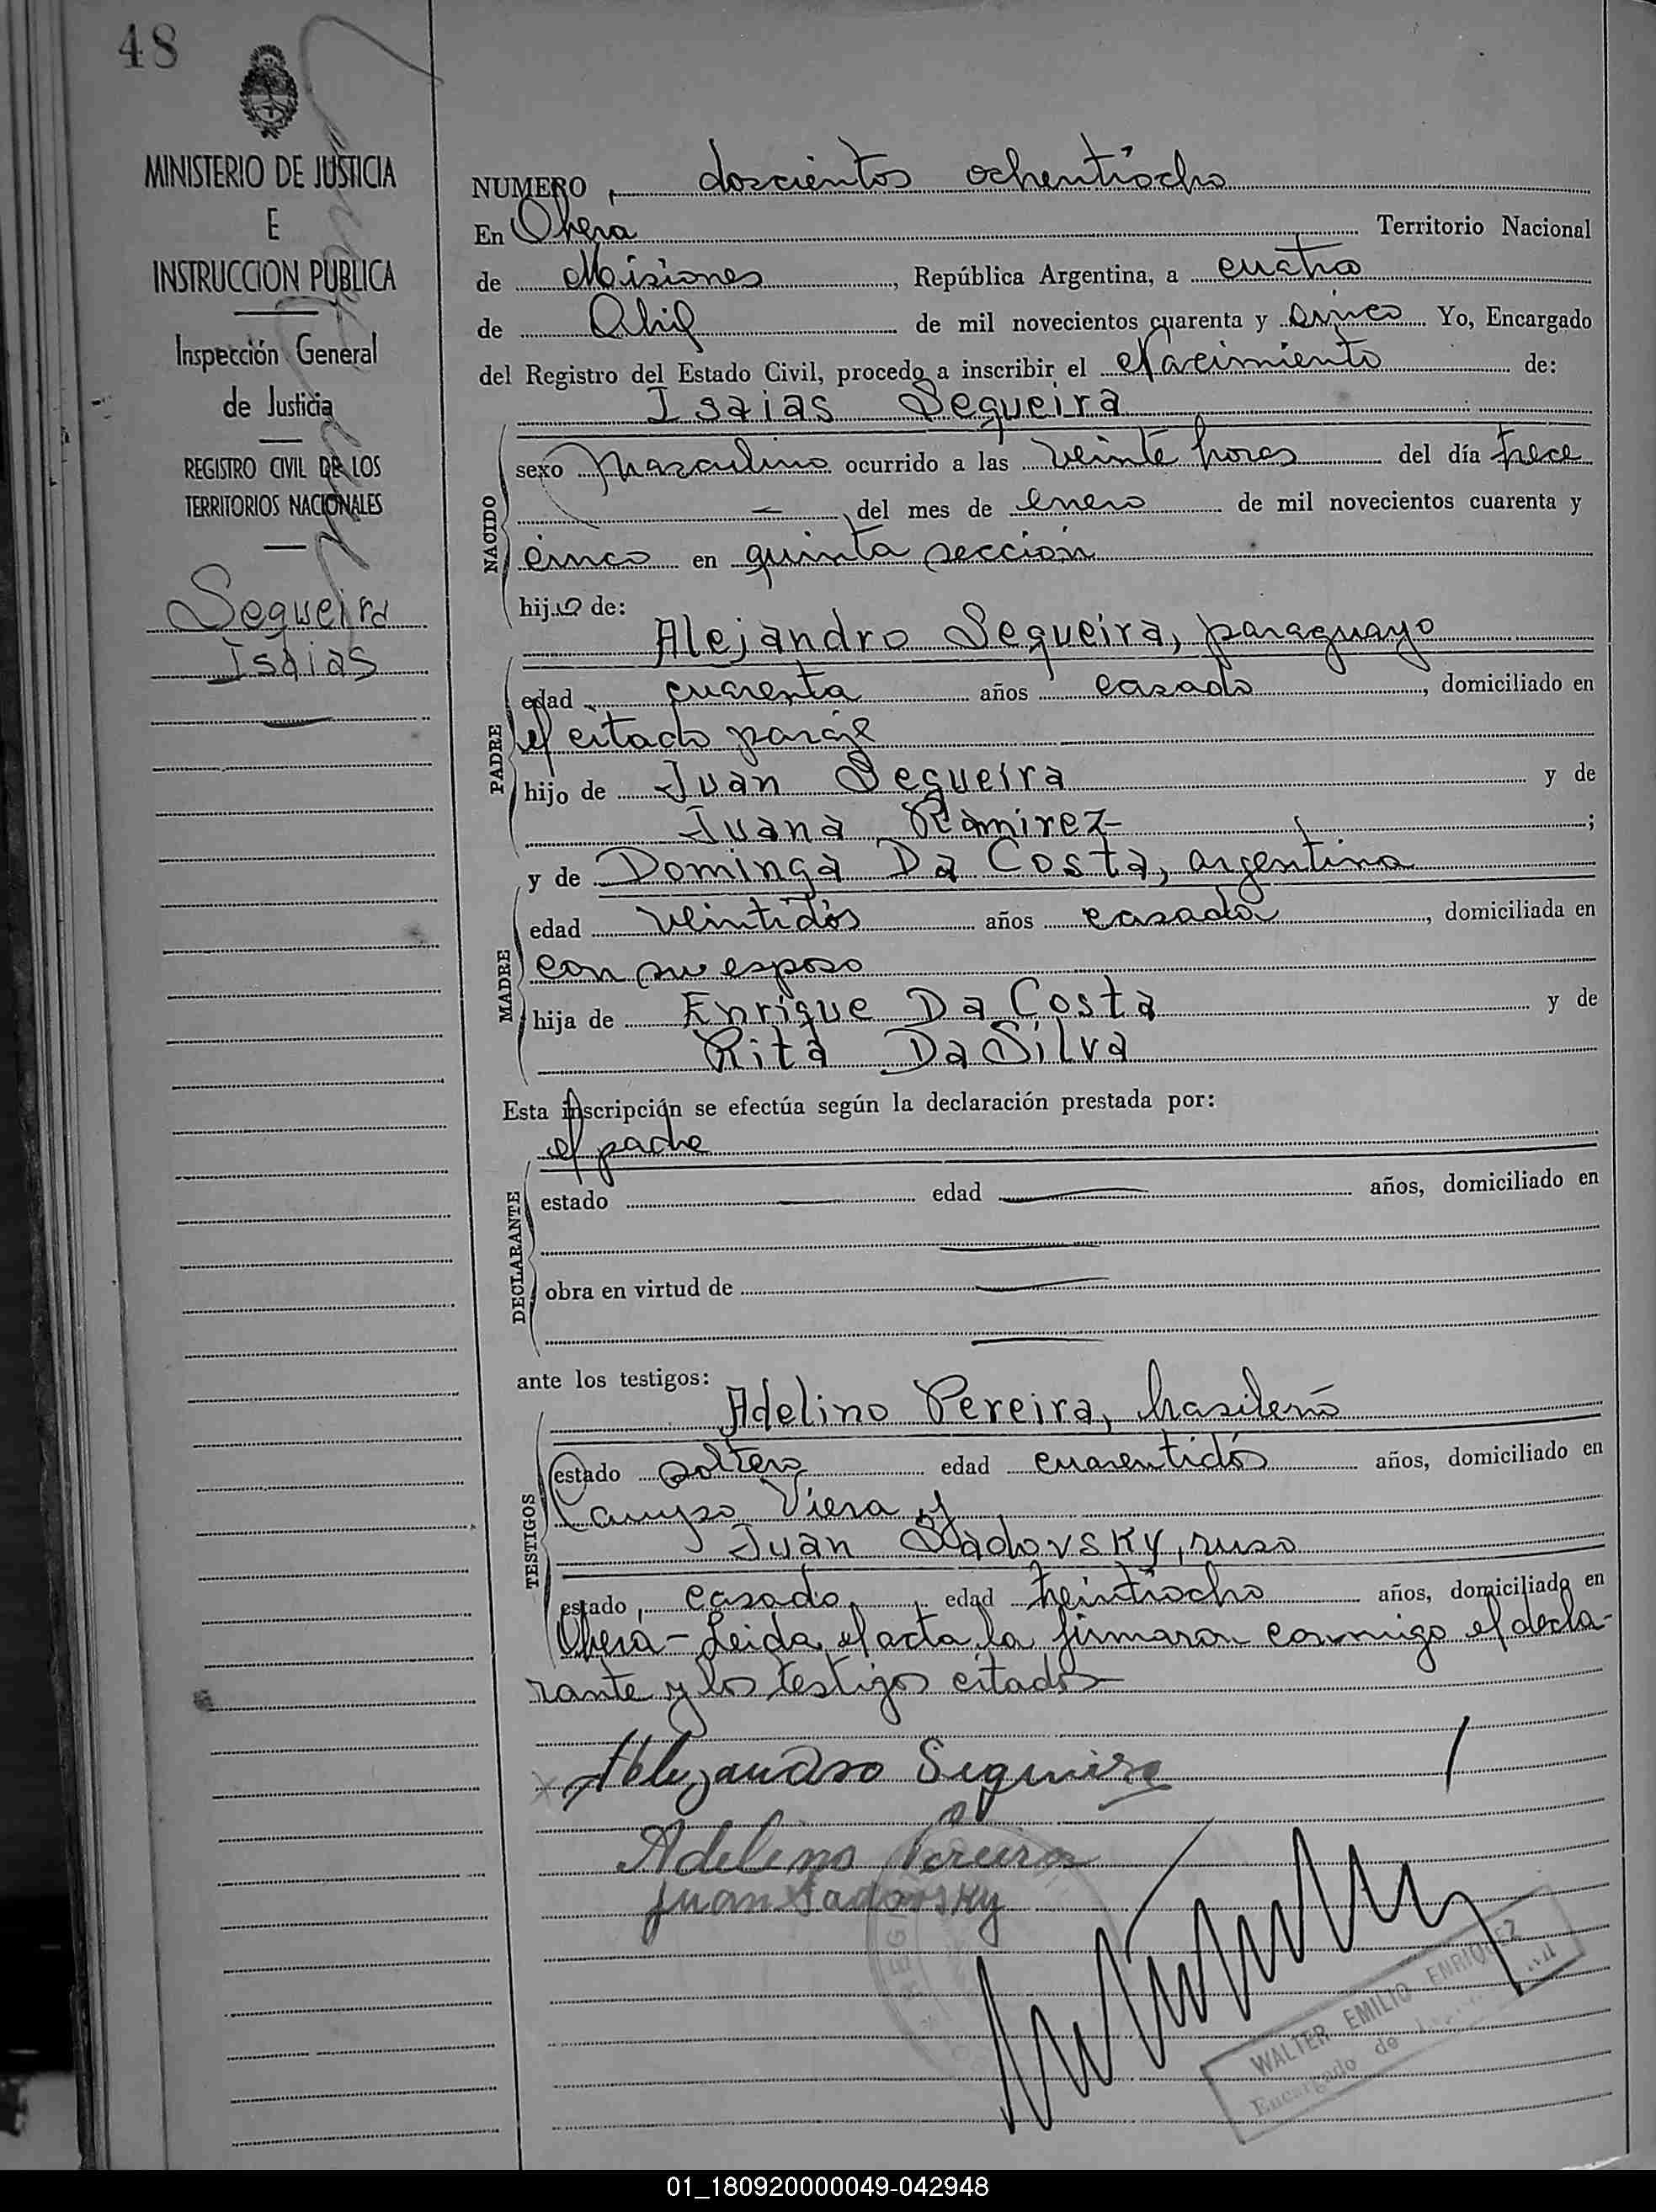 48
MINISTERIO DE JUSTICIA
E
INSTRUCCION PUBLICA
Inspección General
de Justicia
REGISTRO CIVIL DE LOS
TERRITORIOS NACIONALES
Sequeira
Isaias
NUMERO doscientos ochentiocho
En Obera Territorio Nacional
de Misiones, República Argentina, a cuatro
de Abril de mil novecientos cuarenta y cinco Yo, Encargado
del Registro del Estado Civil, procedo a inscribir el Nacimiento de:
Isaias Sequeira
NACIDO
sexo masculino ocurrido a las veinte horas del día trece
del mes de enero de mil novecientos cuarenta y
cinco en quinta sección
hijo de:
Alejandro Sequeira, paraguayo
PADRE
edad cuarenta años casado, domiciliado en
el citado paraje
hijo de Juan Sequeira y de
Juana Ramirez;
y de Dominga Da Costa, argentina
MADRE
edad veintidós años casada, domiciliada en
con su esposo
hija de Enrique Da Costa y de
Rita Da Silva
Esta inscripción se efectúa según la declaración prestada por:
el padre
DECLARANTE
estado edad años, domiciliado en
obra en virtud de
ante los testigos:
Adelino Pereira, brasileño
TESTIGOS
estado soltero edad cuarentidós años, domiciliado en
Campo Viera y
Juan Sadovsky, ruso
estado casado, edad treintiocho años, domiciliado en
Obera - Leida el acta la firmaron conmigo el decla-
rante y los testigos citados
Alejandro Sequeira
Adelino Pereira
Juan Sadovsky
WALTER EMILIO ENRIQUEZ
Encargado de
01_180920000049-042948